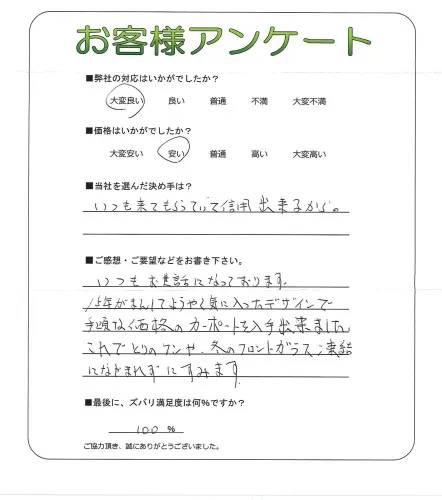 お客様アンケート
■弊社の対応はいかがでしたか？
大変良い 良い 普通 不満 大変不満
■価格はいかがでしたか？
大変安い 安い 普通 高い 大変高い
■当社を選んだ決め手は？
いつも来てもらっていて信用出来るから。
■ご感想・ご要望などをお書き下さい。
いつもお世話になっております。
15年がまんしてようやく気に入ったデザインで
手頃な価格のカーポートを入手出来ました
これでとりのフンや、冬のフロントガラス凍結
になやまれずにすみます
■最後に、ズバリ満足度は何％ですか？
100 ％
ご協力頂き、誠にありがとうございました。